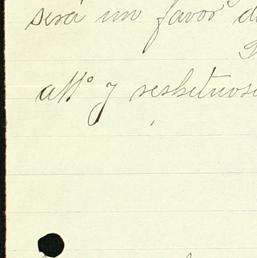 será un favor d
att° y respetuos